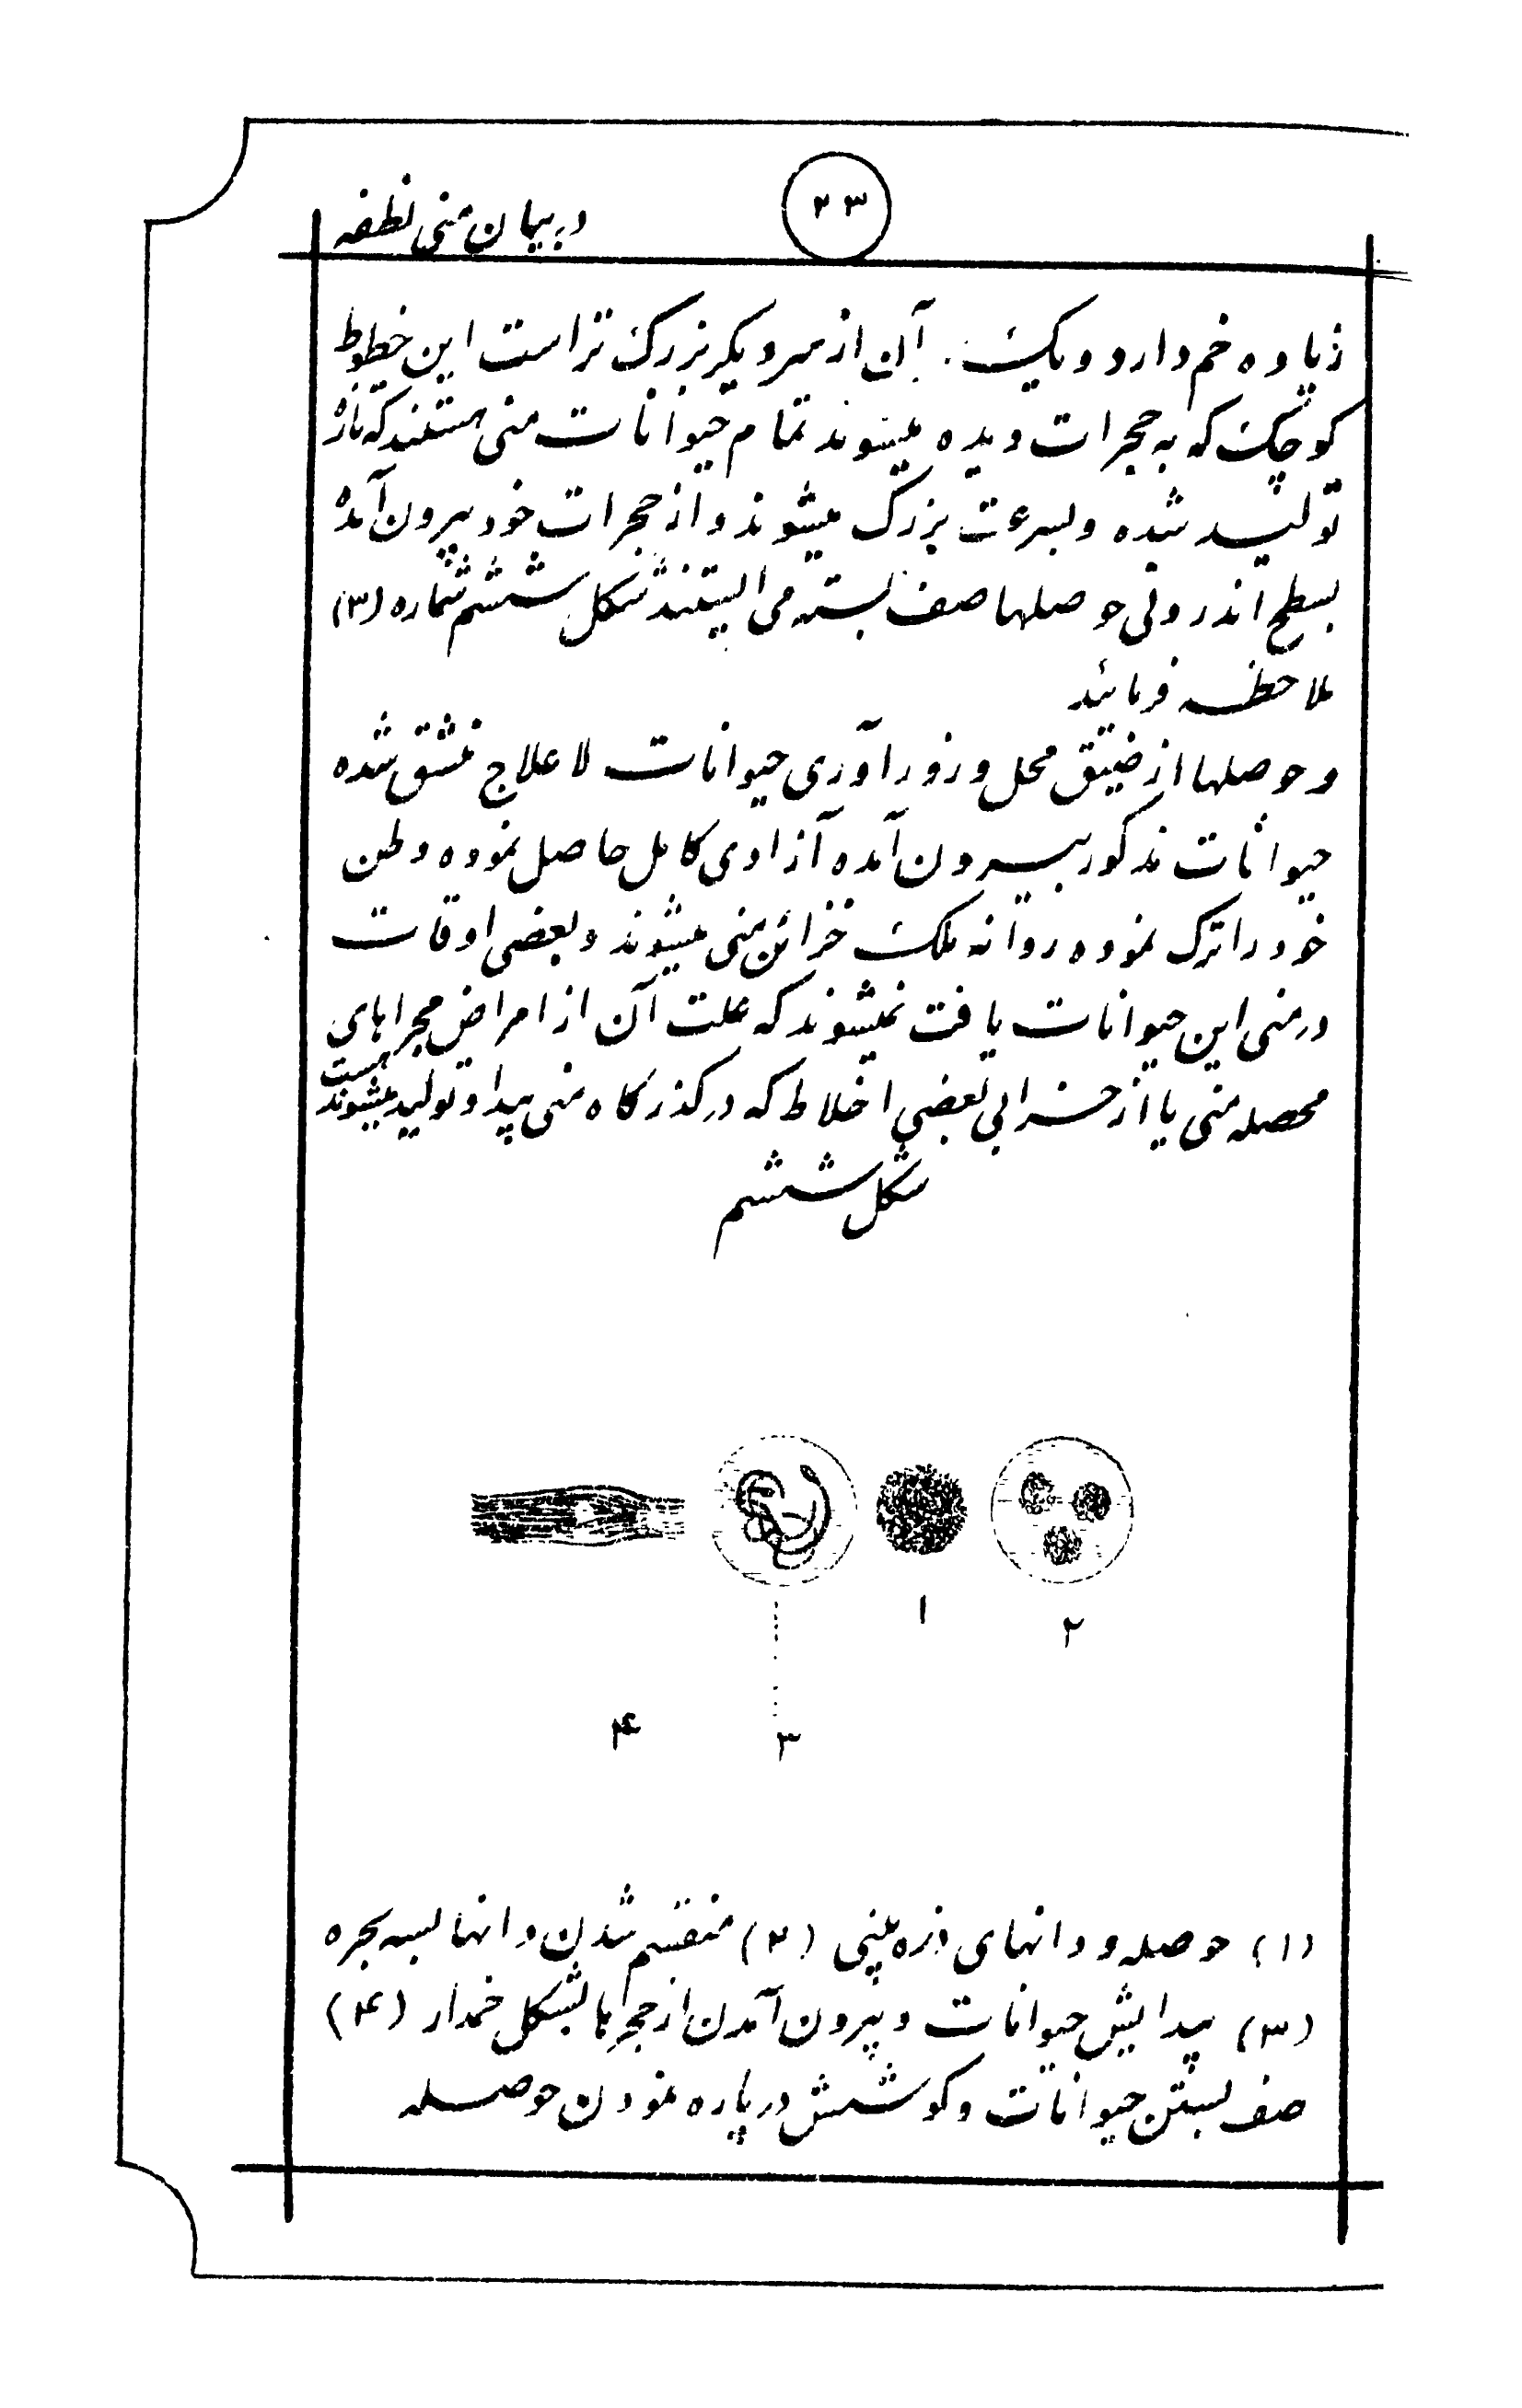 ۲۳
در بیان منی نطفه
زیاده خم دارد و یک آن از سر دیگر بزرک تر است این خطوط
کوچک که به حجرات دیده میشوند تمام حیوانات منی هستند که تازه
تولید شده و بسرعت بزرک میشوند و از حجرات خود بیرون آمده
بسطح اندرونی حوصلها صف بسته می ایستند شکل ششم شماره (۳)
ملاحظه فرمائید
و حوصلها از ضیق محل و زور آوری حیوانات لا علاج منشق شده
حیوانات مذکور بیرون آمده آزادی کامل حاصل نموده وطن
خود را ترک نموده روانه ملک خزائن منی میشوند و بعضی اوقات
در منی این حیوانات یافت نمیشوند که علت آن از امراض مجراهای
محصله منی یا از خرابی بعضی اخلاط که در کذرکاه منی پیدا و تولید میشوند هست
شکل ششم
۱
۲
۳
۴
(۱) حوصله و دانهای ذره بینی (۲) منقسم شدن دانها بسه حجره
(۳) پیدایش حیوانات و بیرون آمدن از حجرها بشکل خمدار (۴)
صف بستن حیوانات و کوشش در پاره نمودن حوصله